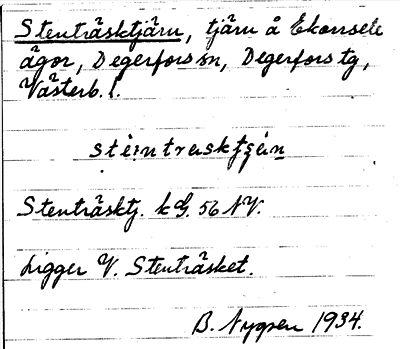 Stenträsktjärn, tjärn å Ekorrsele
ägor, Degerfors sn, Degerfors tg,
Västerb. l.
Stenträsktj. k G. 56 NV.
Ligger V. Stenträsket.
B. Nygren 1934.